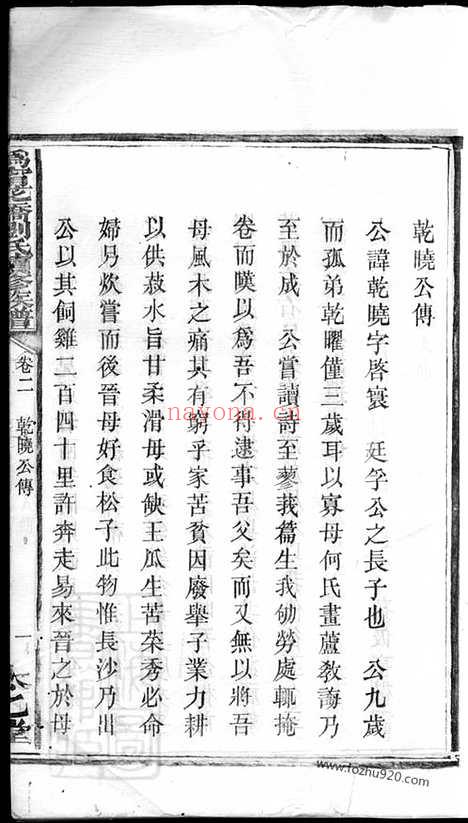 乾曉公傳
公諱乾曉字啓寰 廷孚公之長子也 公九歲
而孤弟乾曜僅三歲耳以寡母何氏畫蘆敎誨乃
至於成 公嘗讀詩至蓼莪篇生我劬勞處輒掩
卷而嘆以爲吾不得逮事吾父矣而又無以將吾
母風木之痛其有窮乎家苦貧因廢舉子業力耕
以供菽水旨甘柔滑毋或缺王瓜生苦菜秀必命
婦另炊嘗而後晉母好食松子此物惟長沙乃出
公以其伺雞二百四十里許奔走易來晉之於母
劉氏續修族譜
卷二
乾曉公傳
一
nayona.cn
www.fozhu920.com